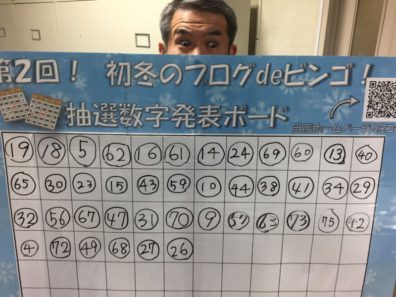 第2回! 初冬のブログdeビンゴ!
抽選数字発表ボード
当店ホームページはこ
19 18 5 62 16 61 14 24 69 60 13 40
65 30 23 15 43 59 10 44 38 41 34 29
32 56 67 47 31 70 9 63 73 75 42
4 72 49 68 27 26